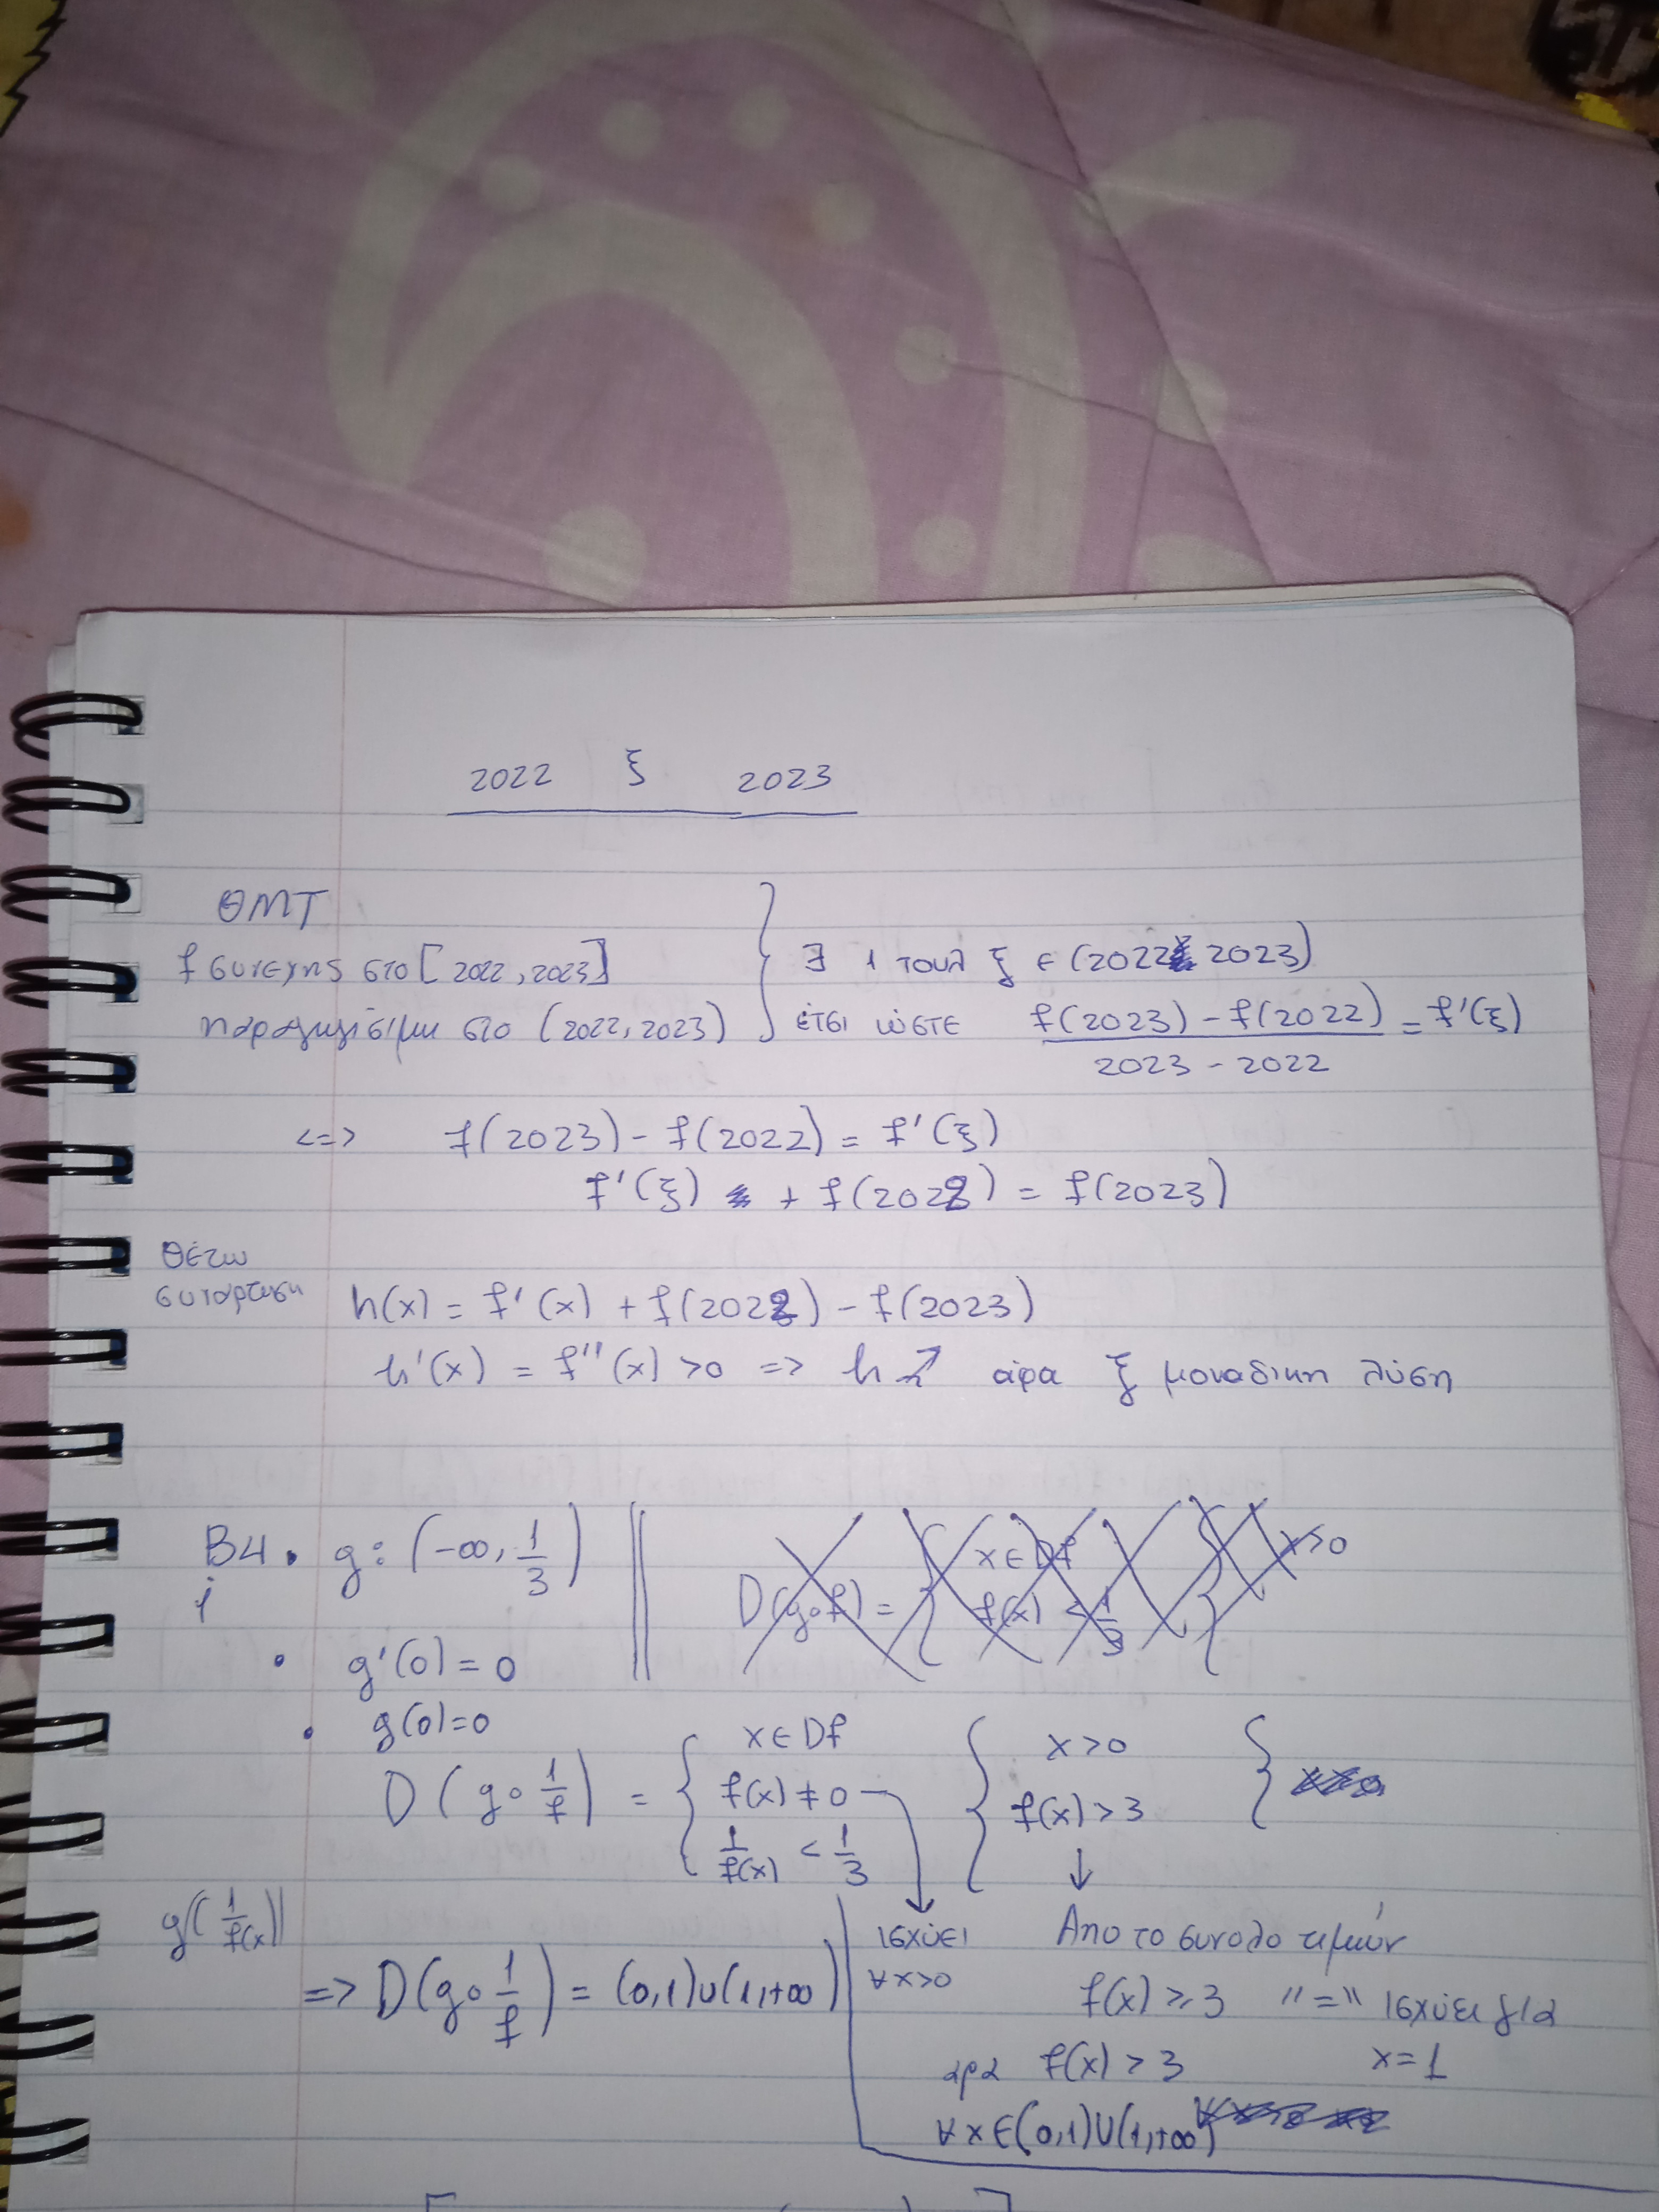 2022 ξ 2023
ΘΜΤ
f συνεχης στο [2022, 2023]
παραγωγίσιμη στο (2022, 2023)
∃ 1 τουλ ξ ∈ (2022, 2023)
έτσι ώστε f(2023) - f(2022) / 2023 - 2022 = f'(ξ)
<=> f(2023) - f(2022) = f'(ξ)
f'(ξ) + f(2022) = f(2023)
Θέτω
συνάρτηση h(x) = f'(x) + f(2022) - f(2023)
h'(x) = f''(x) >0 => h ↗ άρα ξ μοναδικη λύση
B4. g: (-∞, 1/3)
i
• g'(0) = 0
• g(0)=0
D(g∘f) = { x ∈ Df f(x) < 1/3 } x>0
D(g∘1/f) = { x ∈ Df f(x) ≠ 0 1/f(x) < 1/3 { x >0 f(x) >3 }
g(1/f(x))
=> D(g∘1/f) = (0,1)∪(1,+∞)
ισχύει
∀x>0
Απο το συνολο τιμών
f(x) ≥ 3 "=" ισχύει για
x=1
αρα f(x) > 3
∀x∈(0,1)∪(1,+∞)